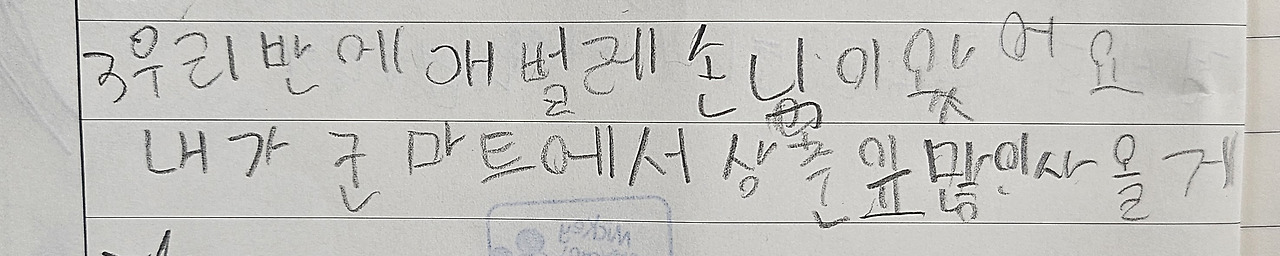 3우리 반에 애벌레 손님이 왔어요
내가 큰 마트에서 상춘잎 많이 사올게